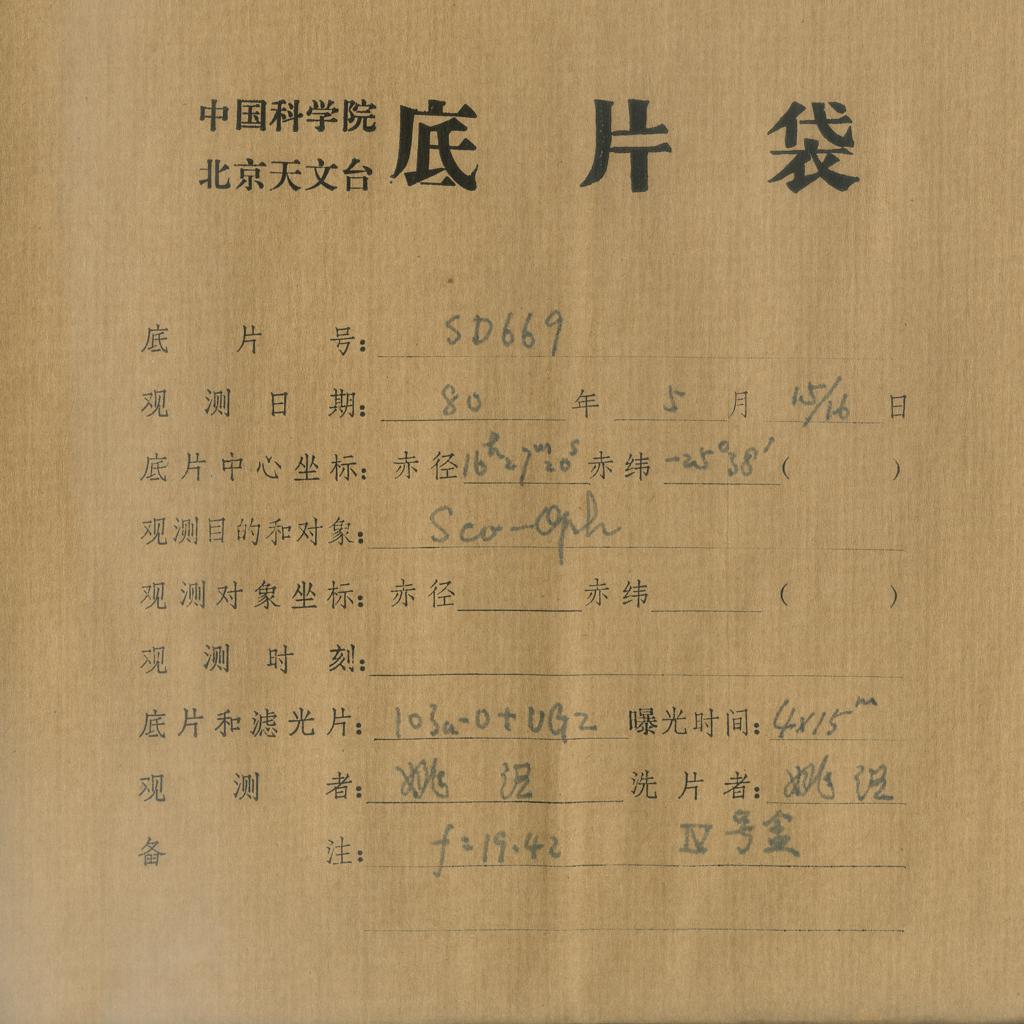 中国科学院
北京天文台
底片袋
底片号：SD669
观测日期：80年5月15/16日
底片中心坐标：赤径16h27m20s赤纬-25°38′（ ）
观测目的和对象：Sco-Oph
观测对象坐标：赤径 赤纬 （ ）
观测时刻：
底片和滤光片：103a-O+UG2 曝光时间：4x15m
观测者：姚 洗片者：姚
备注：f=19.42 IV号盒